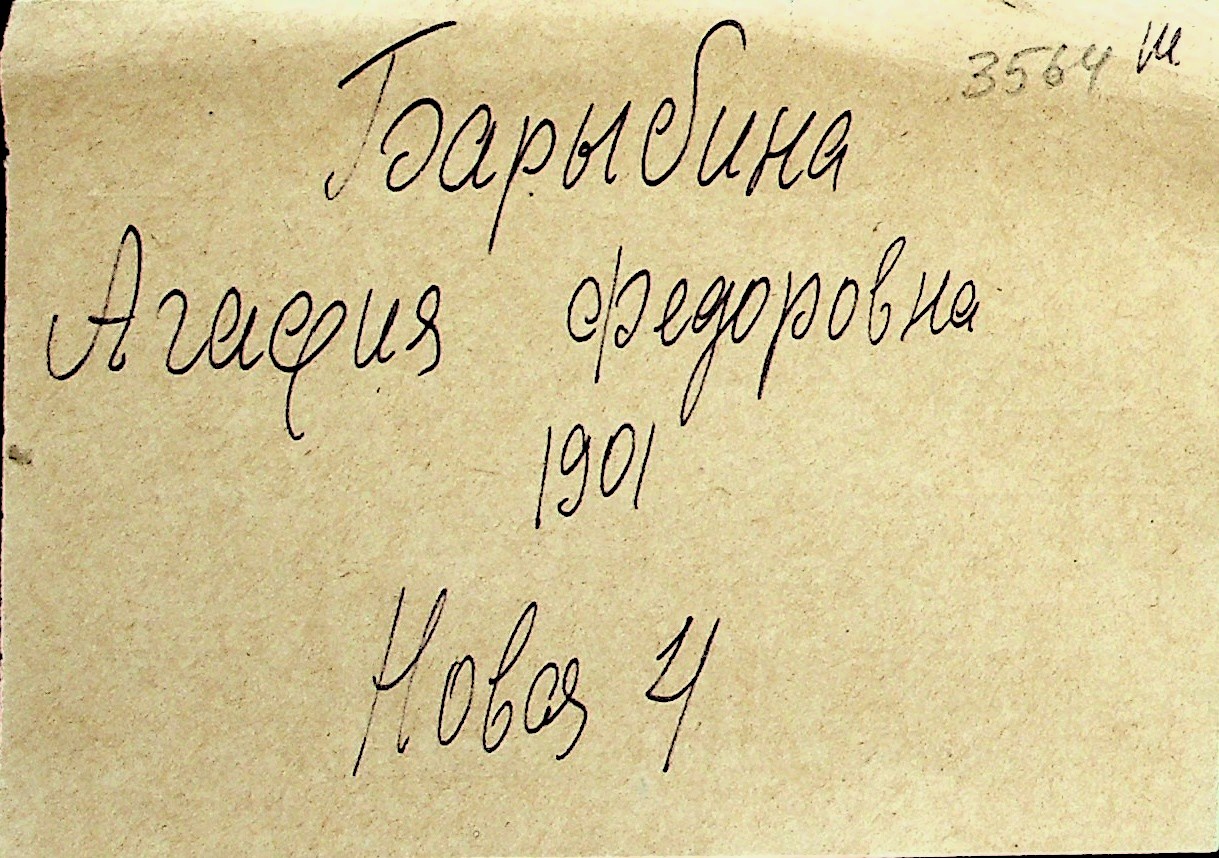 3564 Ш
Барыбина
Агафия Федоровна
1901
Новая 4